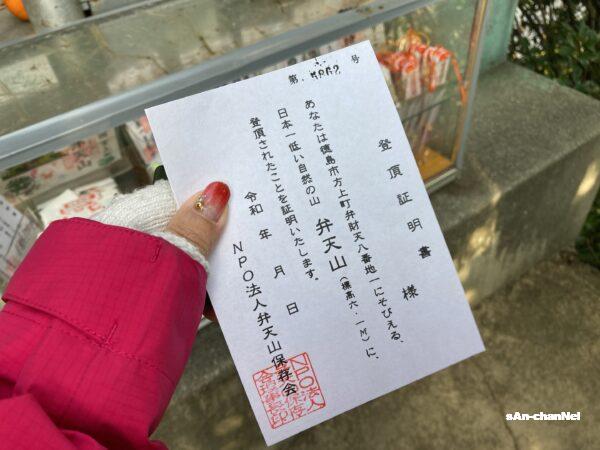 第 号
登頂証明書
様
あなたは徳島市方上町弁財天八番地一にそびえる、
日本一低い自然の山 弁天山(標高六・一M)に、
登頂されたことを証明いたします。
令和 年 月 日
NPO法人弁天山保存会
sAn-chanNel